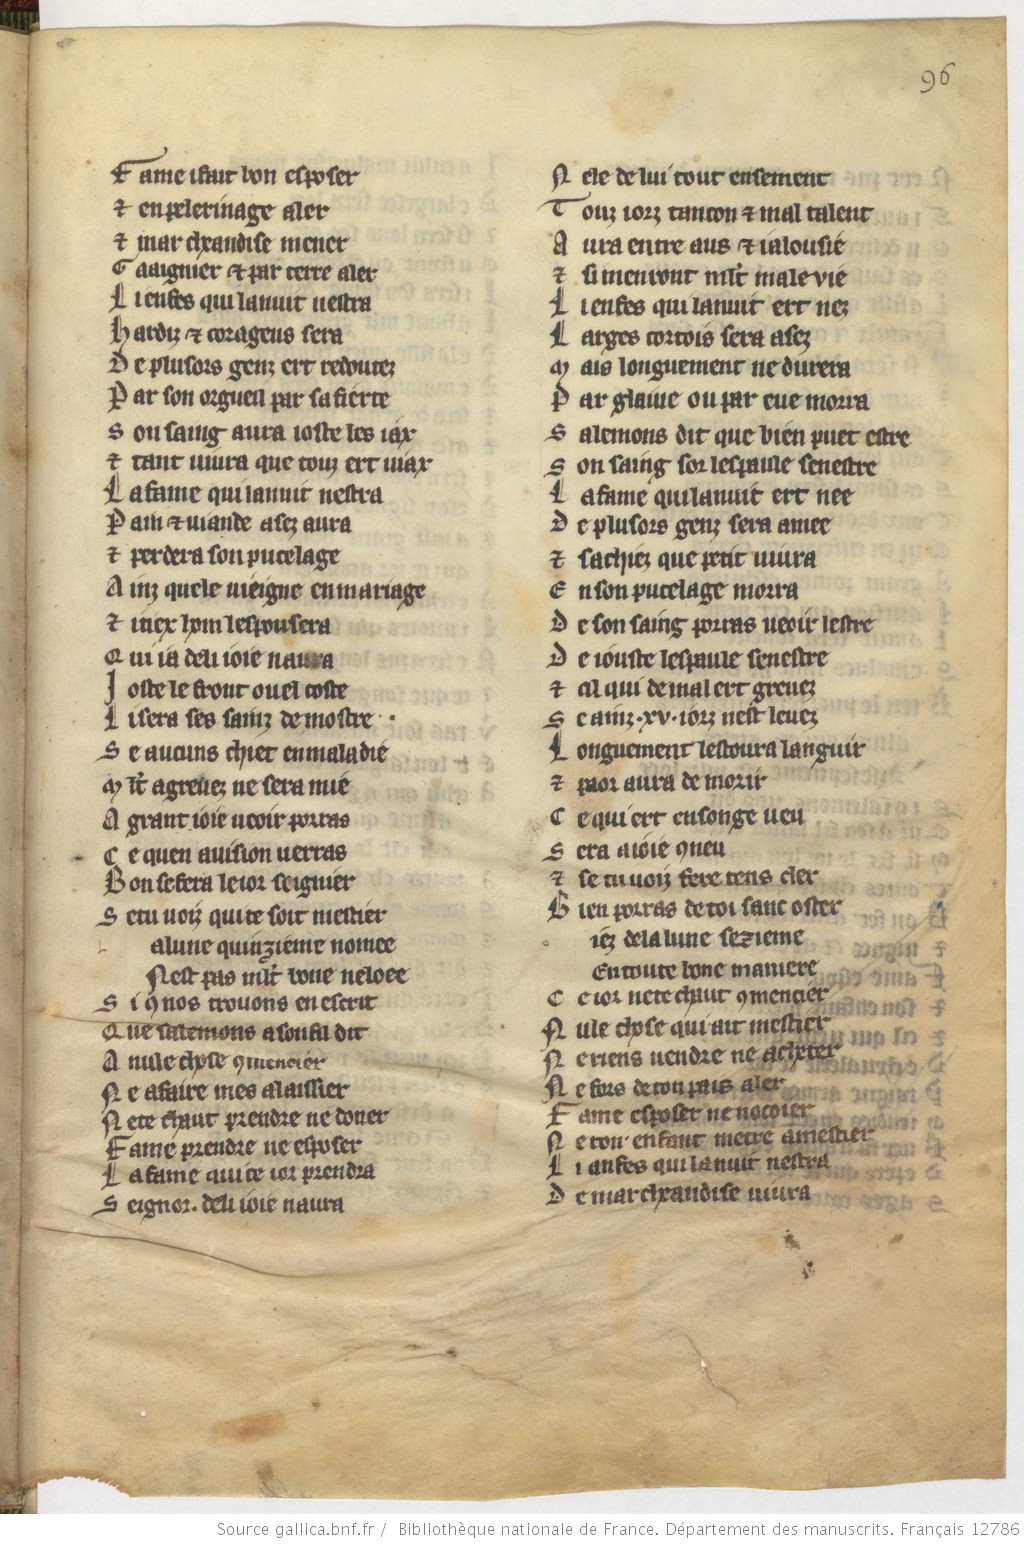 96
Fame i fait bon esposer
⁊ en pelerinage aler
⁊ marcheandise mener
Gaaignier ⁊ par terre aler
Li enfes qui la nuit nestra
Hardiz ⁊ corageus sera
De plusors genz ert redoutez
Par son orgueil par sa fierte
Son saing aura ioste les iax
⁊ tant uiura que touz ert uiax
La fame qui la nuit nestra
Pain ⁊ uiande asez aura
⁊ perdera son pucelage
Ainz quele uieigne en mariage
⁊ uiex hom lespousera
Qui ia de li ioie naura
Ioste le front ou el coste
Li sera ses sainz demostre
Se aucuns chiet en maladie
Mlt agreuez ne sera mie
A grant ioie ueoir porras
Ce quen auision uerras
Bon se fera le ior seignier
Se tu uoiz qui te soit mestier
A lune quinzieme nomee
Nest pas mlt bone ne loee
Si ꝯ nos trouons en escrit
Que salemons a son fil dit
A nule chose ꝯmencier
Ne a faire mes a laissier
Ne te chaut prendre ne doner
Fame prendre ne esposer
La fame qui ce ior prendra
Seignor. de li ioie naura
Nele de lui tout ensement
Touz iorz tancon ⁊ mal talent
Aura entre aus ⁊ ialousie
⁊ si menront mlt male vie
Li enfes qui la nuit ert nez
Larges cortois sera asez
Mais longuement ne durera
Par glaiue ou par eue morra
Salemons dit que bien puet estre
Son saing sor lespaule senestre
La fame qui la nuit ert nee
De plusors genz sera amee
⁊ sachiez que petit uiura
En son pucelage morra
De son saing porras ueoir lestre
De iouste lespaule senestre
⁊ cil qui de mal ert greuez
Se ainz .xv. iorz nest leuez
Longuement lestoura languir
⁊ paor aura de morir
Ce qui ert en songe ueu
Sera a ioie ꝯneu
⁊ se tu uoiz fere tens cler
Bien porras de toi sanc oster
iez de la lune sezieme
En toute bone maniere
Ce ior ne te chaut ꝯmencier
Nule chose qui ait mestier
Ne riens uendre ne acheter
Ne fors de ton pais aler
Fame esposer ne nocoier
Ne ton enfant metre a mestier
Li anfes qui la nuit nestra
De marcheandise uiura
Source gallica.bnf.fr / Bibliothèque nationale de France. Département des manuscrits. Français 12786